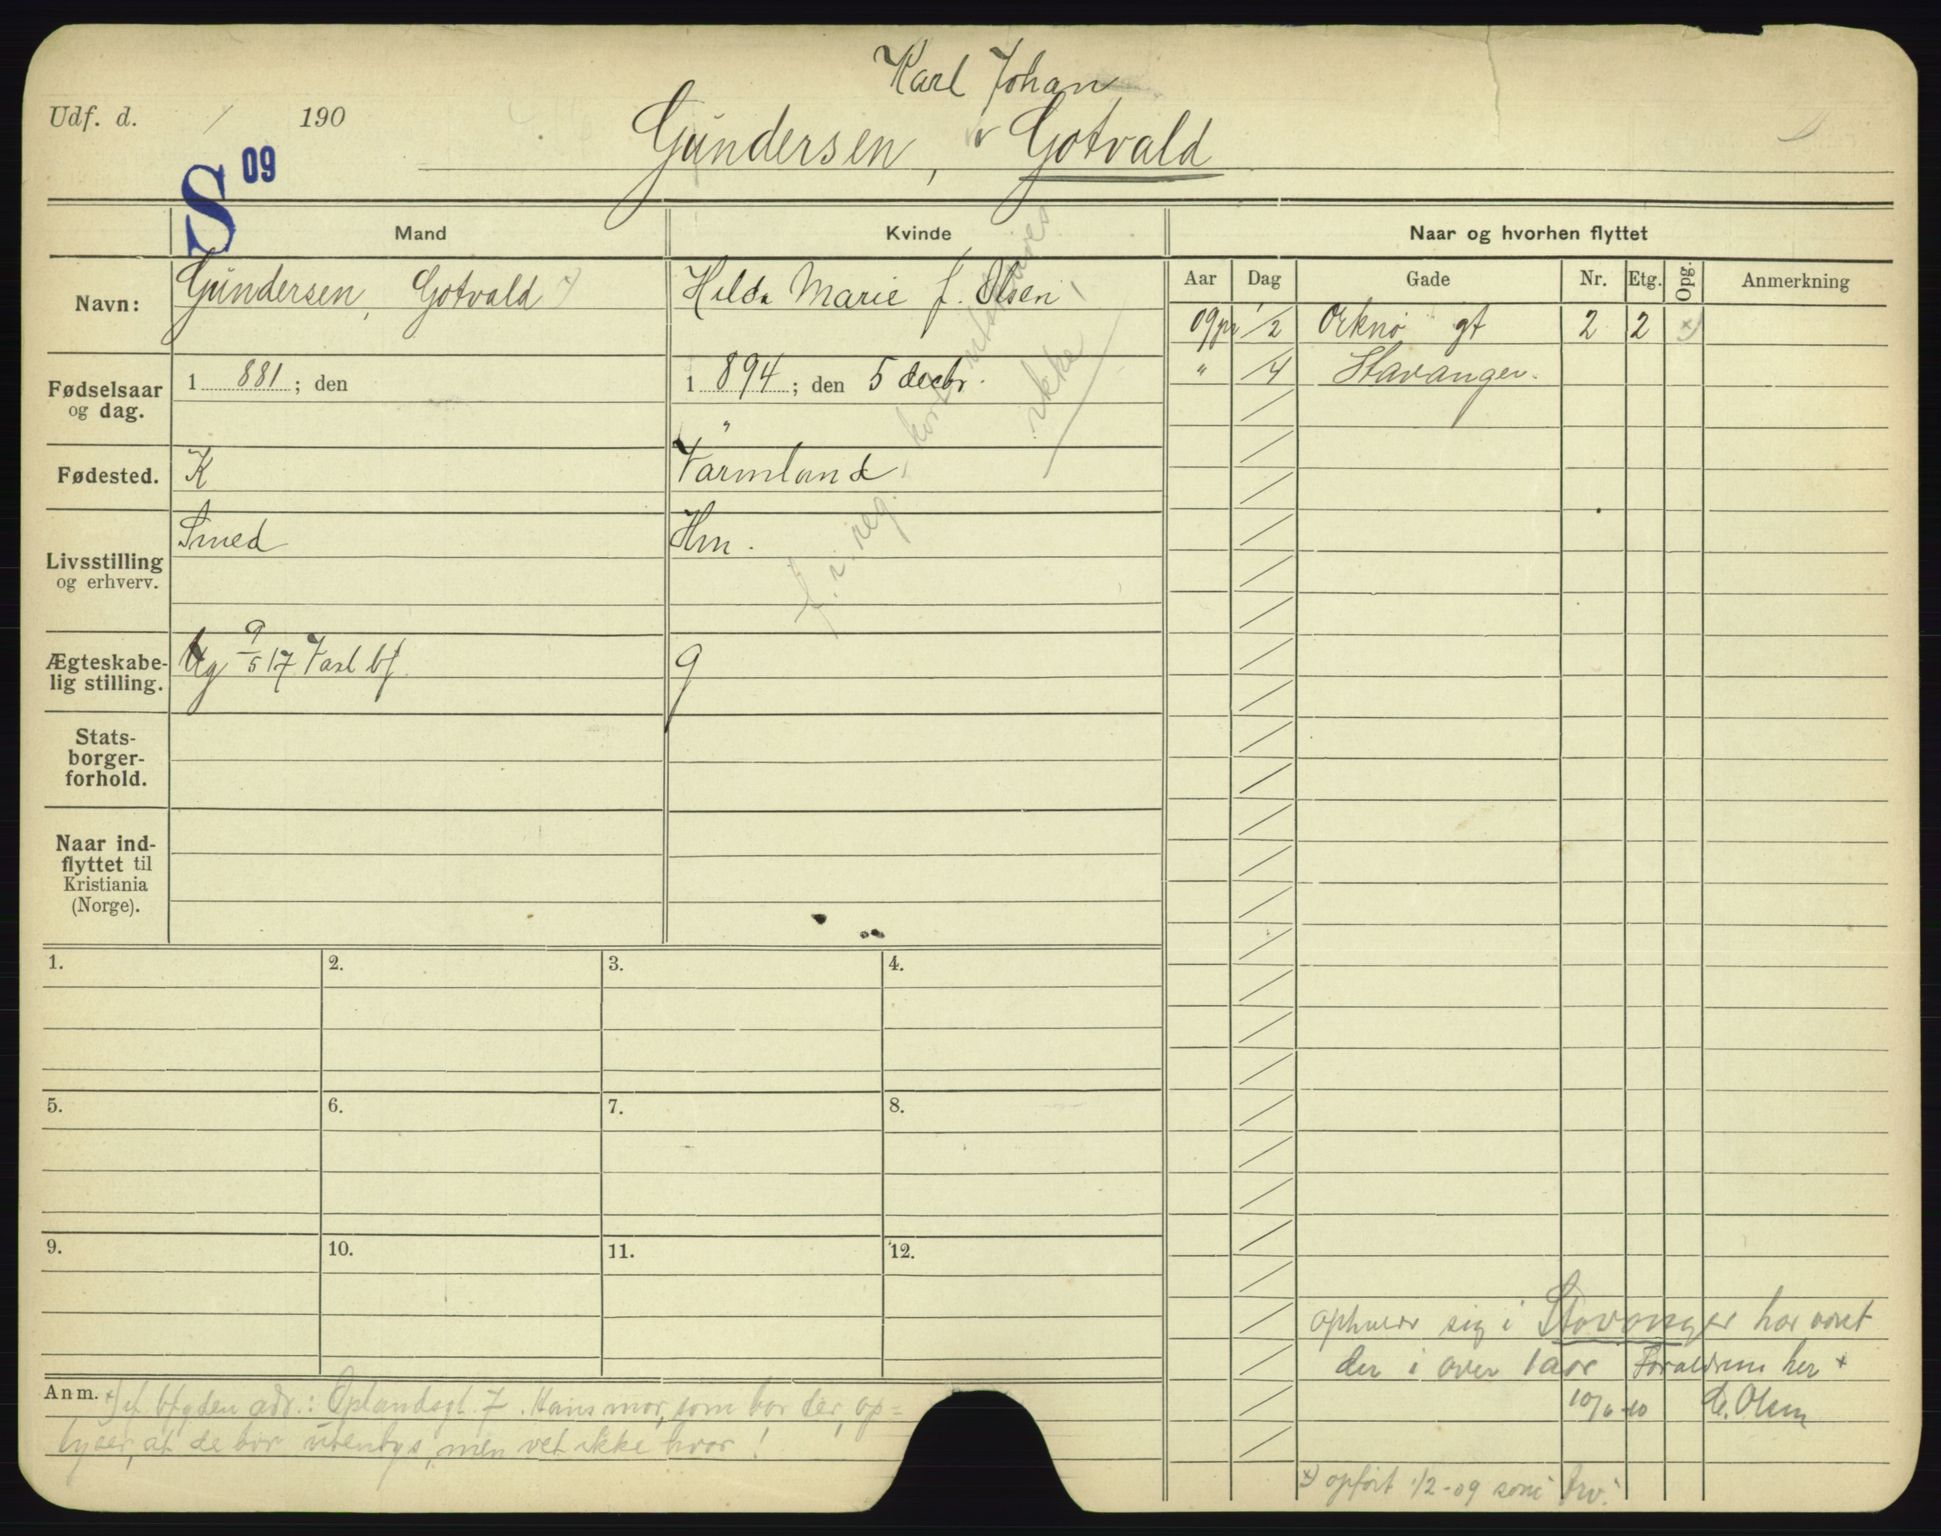 Karl Johan
Udf. d. / 190
Gundersen, Gotvald
S 09
Mand
Kvinde
Naar og hvorhen flyttet
Navn:
Gundersen, Gotvald x)
Hilda Marie f. Olsen
Aar Dag Gade Nr. Etg. Opg. Anmerkning
09 1/2 Orknø gt 2 2 x)
" /4 Stavanger.
Fødselsaar
og dag.
1 881; den
1 894; den 5 decbr.
"
Fødested.
K
Värmland
Livsstilling
og erhverv.
Smed
Hm.
f. i reg.
ikke
Ægteskabe-
lig stilling.
Ug 9/5 17 bf.
g
Stats-
borger-
forhold.
Naar ind-
flyttet til
Kristiania
(Norge).
1. 2. 3. 4.
5. 6. 7. 8.
9. 10. 11. 12.
Anm. x) if bfgden adr.: Oplandsgt. 7. Hans mor, som bor der, op=
lyser, at de bor utenbys, men vet ikke hvor!
opholdr sig i Stavanger har været
der i over 1 aar Foraldrene her +
10/6-10 Olsen
x) opført 1/2-09 som